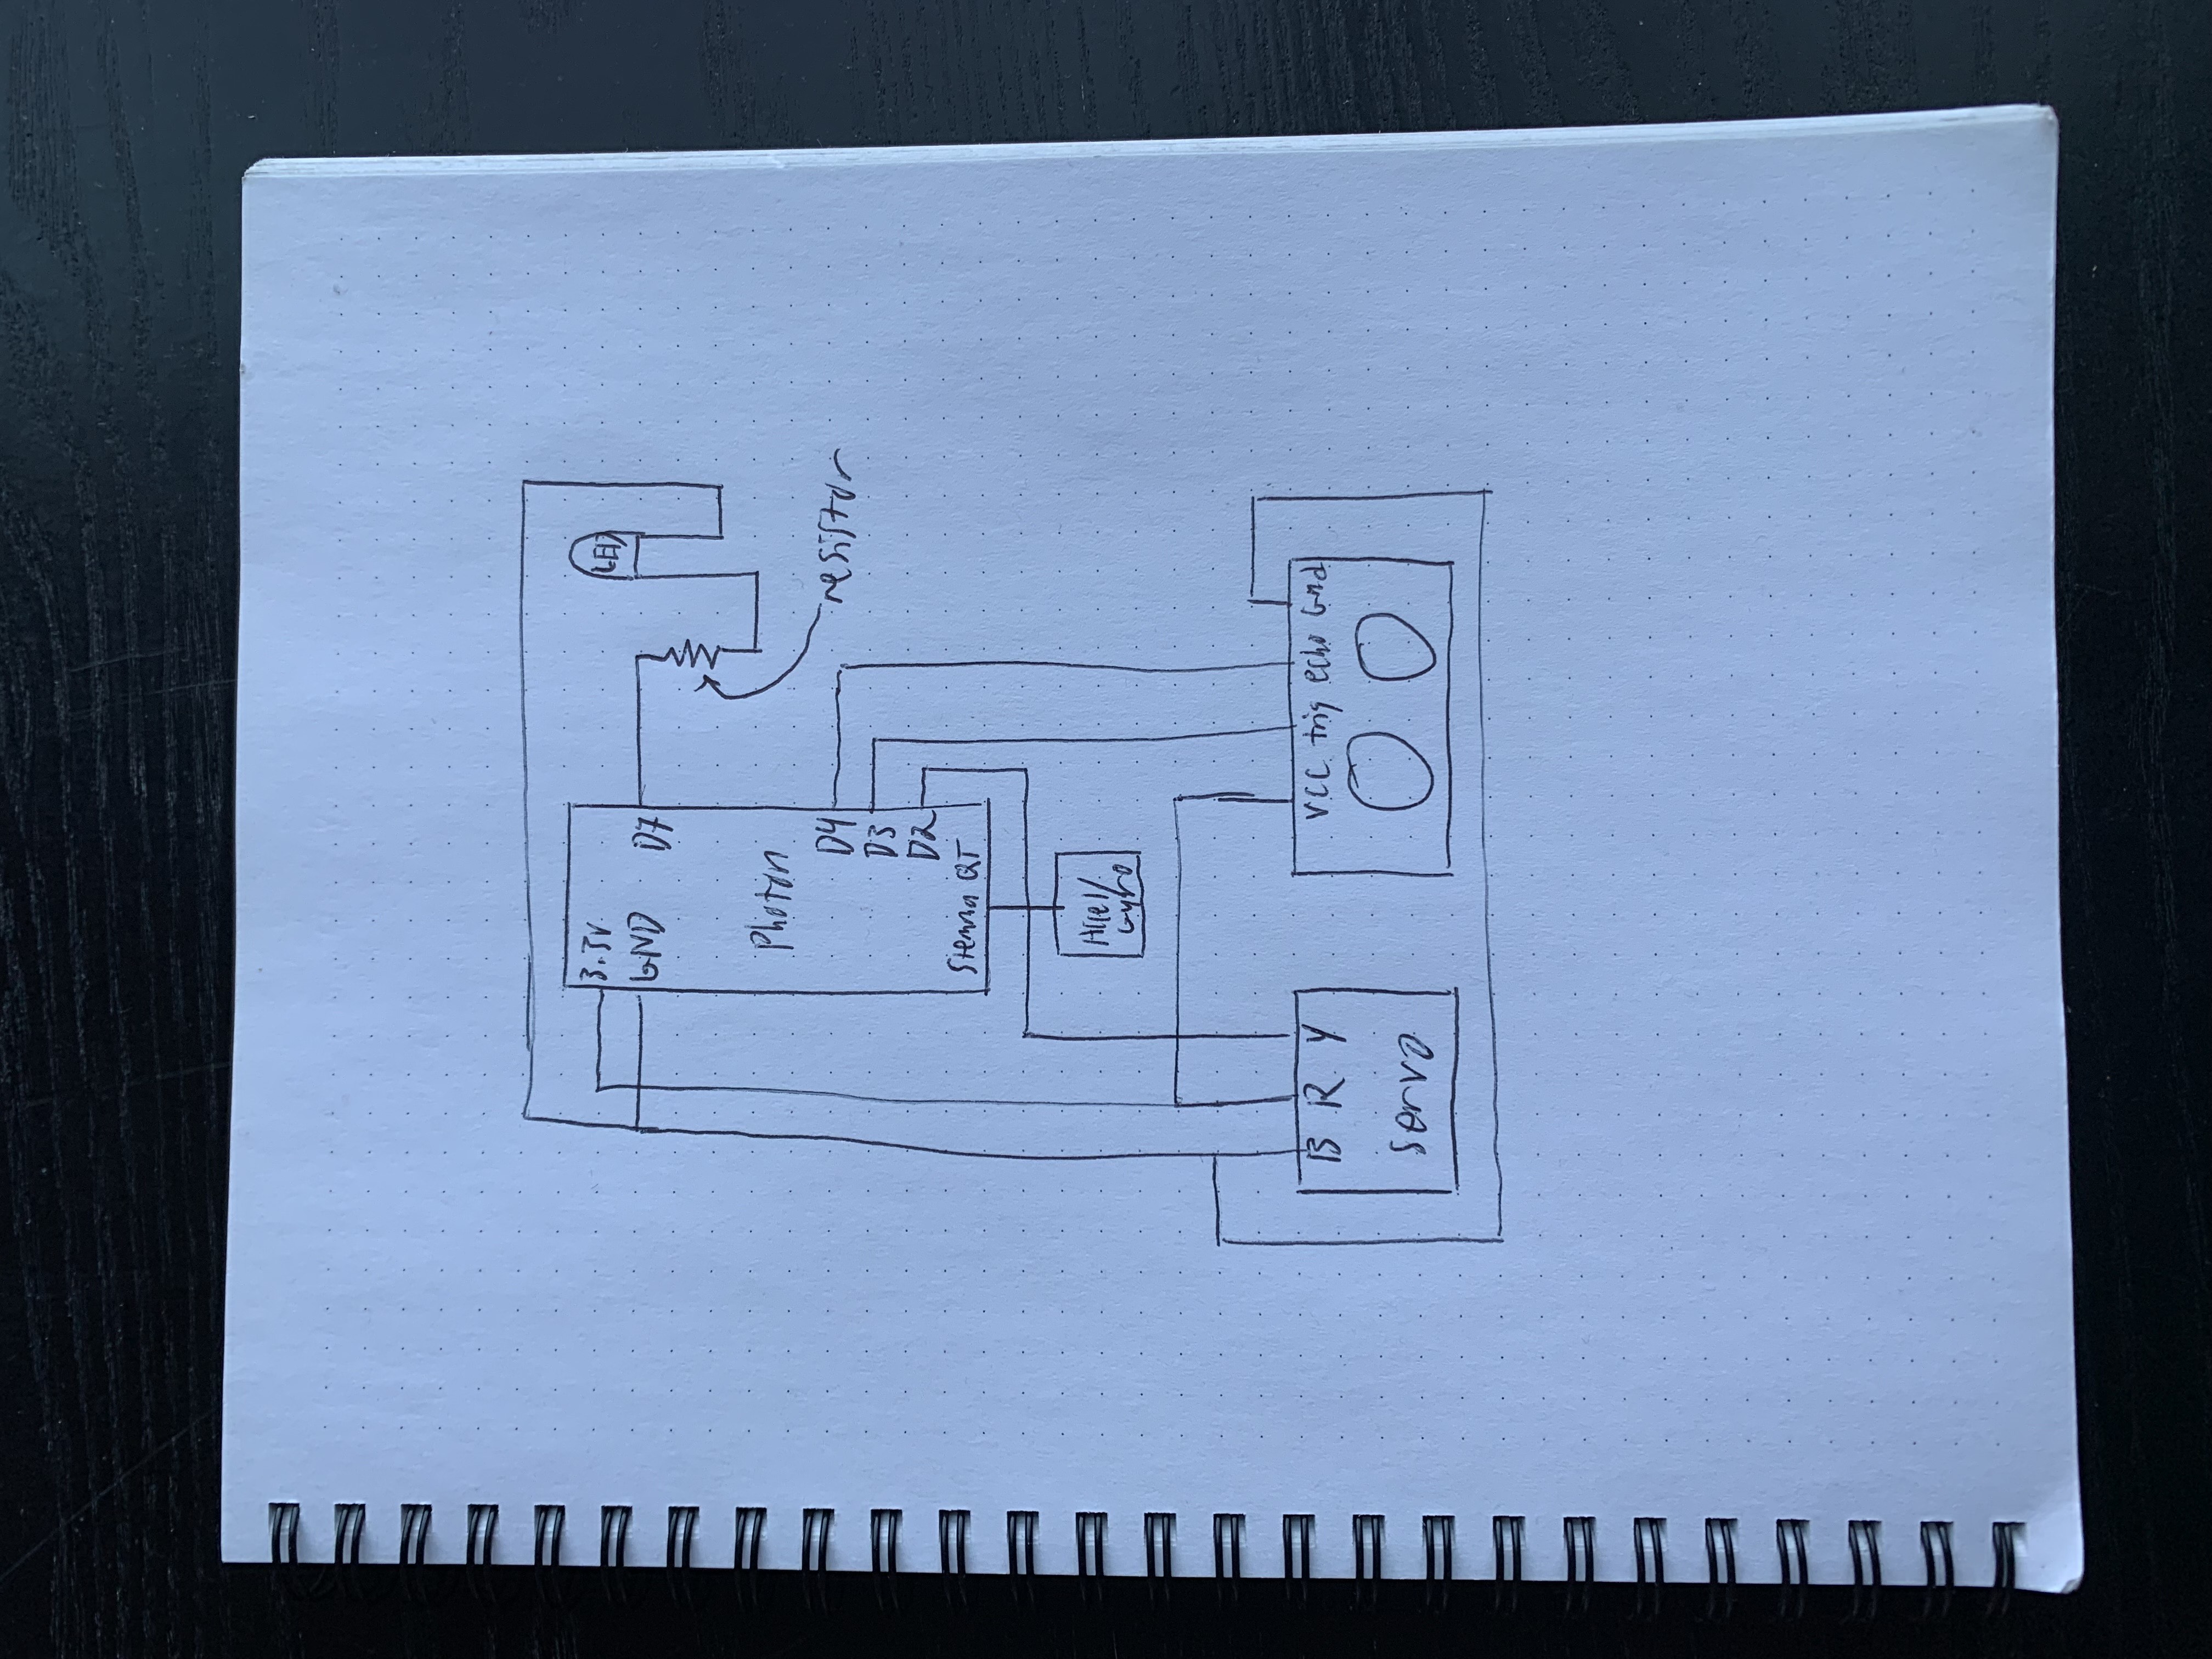 3.3v
GND
D7
LED
Photon
resistor
D4
D3
D2
Stemma QT
Accel/
Gyro
B R Y
VCC trig echo Gnd
servo